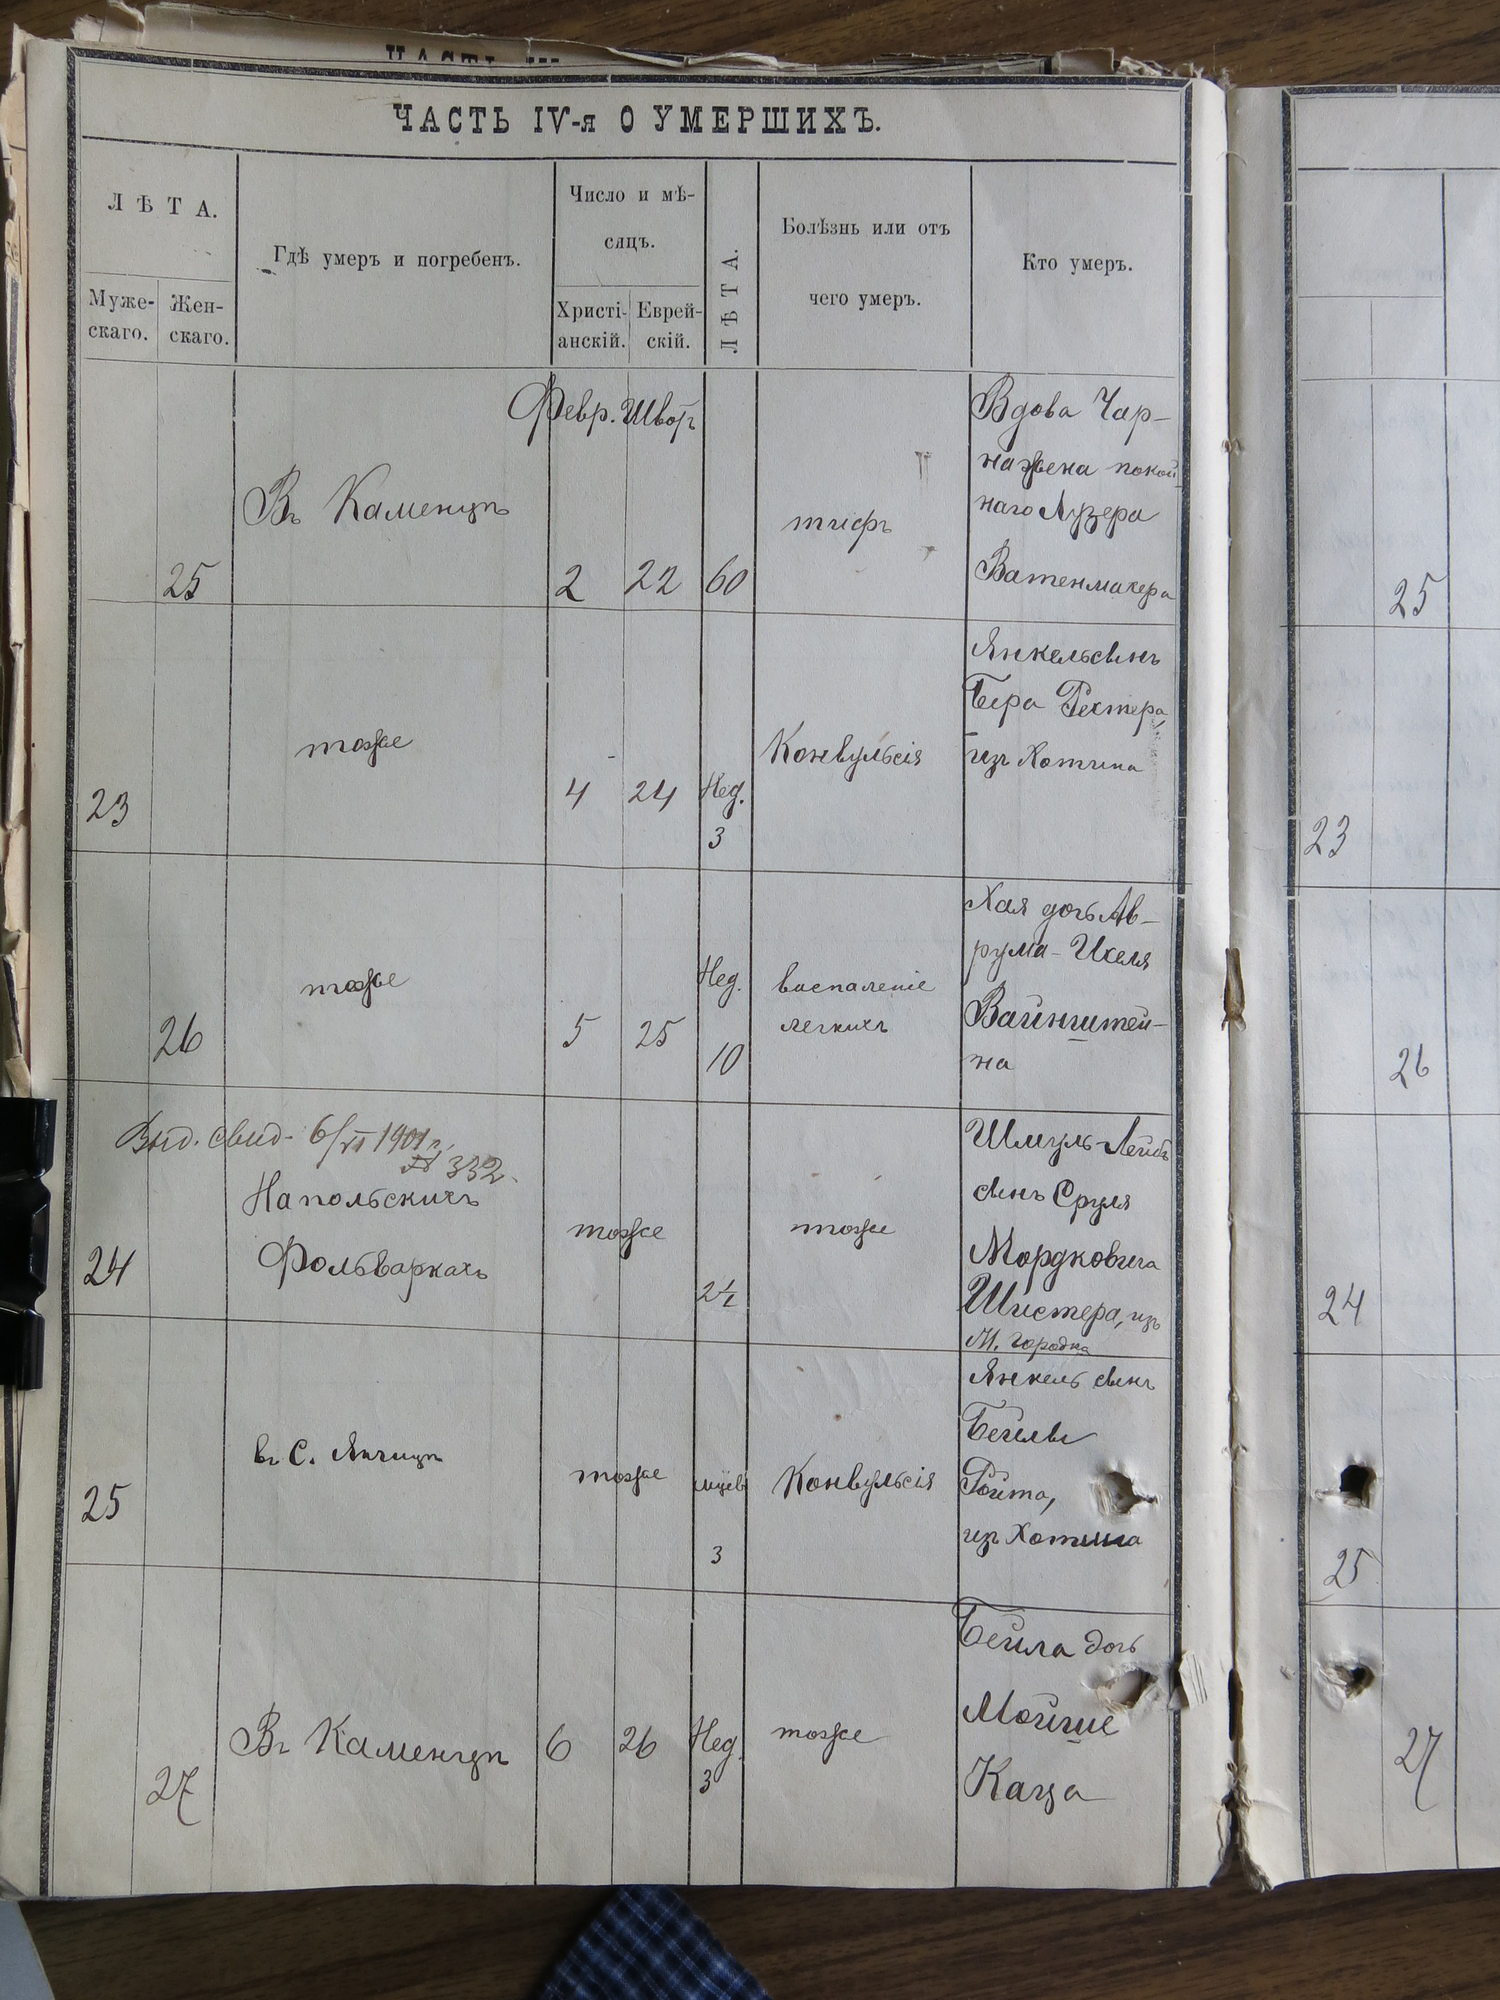 ЧАСТЬ IV-я О УМЕРШИХЪ.
ЛѢТА.
Муже-
скаго.
Жен-
скаго.
Гдѣ умеръ и погребенъ.
Число и мѣ-
сяцъ.
Христі-
анскій.
Еврей-
скій.
ЛѢТА.
Болѣзнь или отъ
чего умеръ.
Кто умеръ.
Февр. Шватъ
25
Въ Каменцѣ
2
22
60
тифъ
Вдова Чар-
на жена покой-
наго Лузера
Ватенмахера
23
тоже
4
24
Нед.
3
Конвульсія
Янкель сынъ
Бера Рехтера,
изъ Хотина
26
тоже
5
25
Нед.
10
воспаленіе
легкихъ
Хая дочь Ав-
рума-Ихеля
Вайнштей-
на
Выд. свид. 6/VI 1901 г.
№ 332.
24
На польскихъ
Фольваркахъ
тоже
2½
тоже
Шмуль-Лейбъ
сынъ Сруля
Мордковича
Шистера, изъ
М. Городка
25
въ С. Янчицѣ
тоже
3
Конвульсія
Янкель сынъ
Бейлы
Ройта,
изъ Хотина
27
Въ Каменцѣ
6
26
Нед.
3
тоже
Бейла дочь
Мойше
Каца
25
23
26
24
25
27